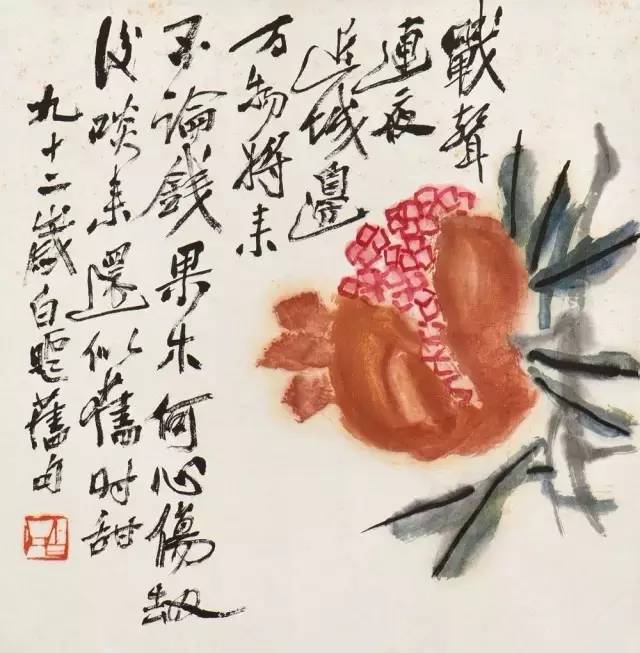 戰聲
連夜
近城邊
万物將来
不論錢果木何心傷劫
後啖来還似舊時甜
九十二歲白題舊句